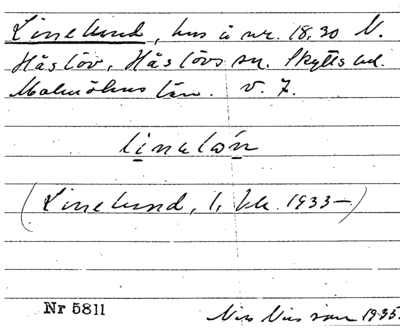 Linelund, hus å nr. 18,30 N.
Håslöv, Håslövs sn. Skytts hd.
Malmöhus län. V. 7.
linelön
(Linelund, 1, bk. 1933—)
Nr 5811
Nils Nilsson 1935.